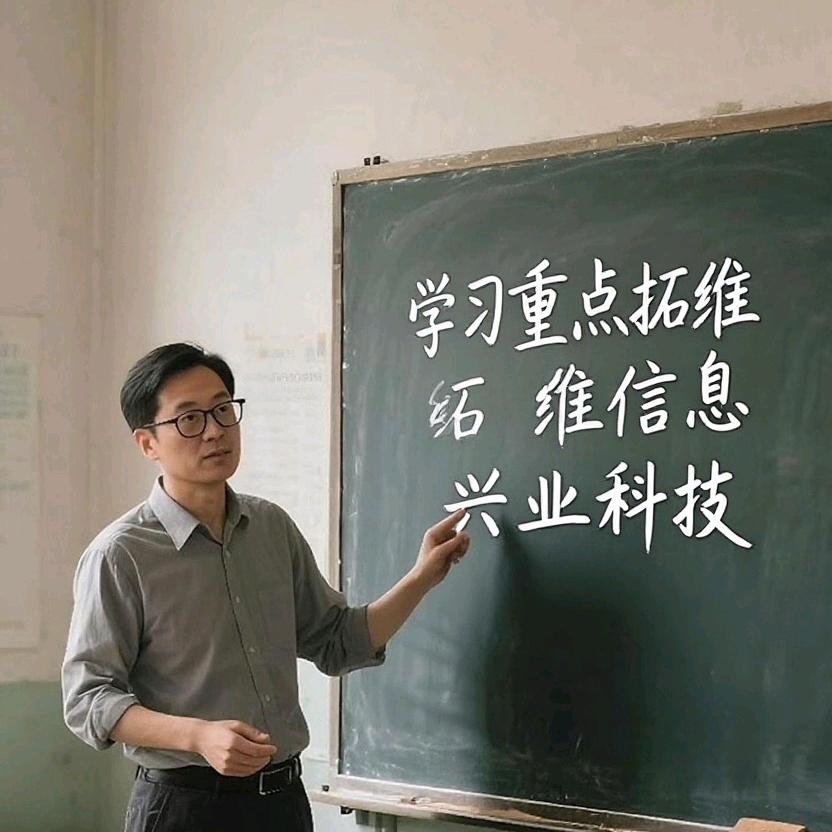 学习重点拓维
维信息
兴业科技